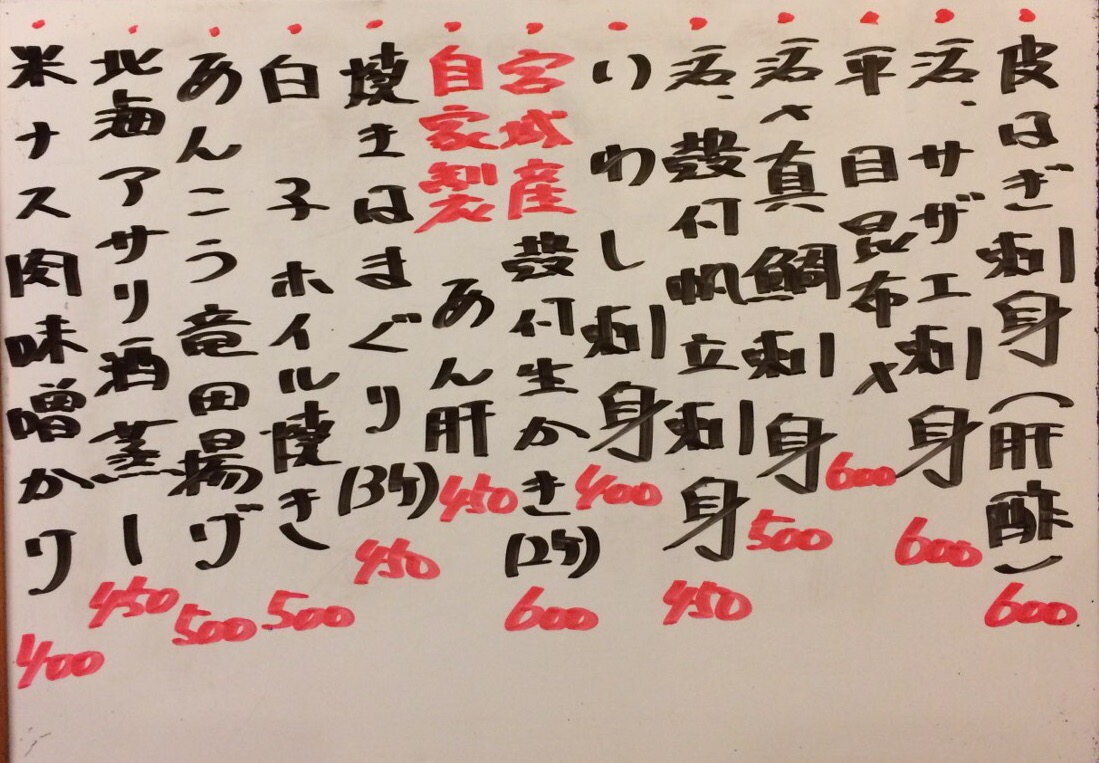 皮はぎ刺身(肝酢) 600
活、サザエ刺身 600
平目昆布〆 600
活〆真鯛刺身 500
活、殻付帆立刺身 450
いわし刺身 400
宮城産殻付生かき(2ケ) 600
自家製あん肝 450
焼きはまぐり(3ケ) 450
白子ホイル焼き 500
あんこう竜田揚げ 500
北海アサリ酒蒸ー 450
米ナス肉味噌かり 400